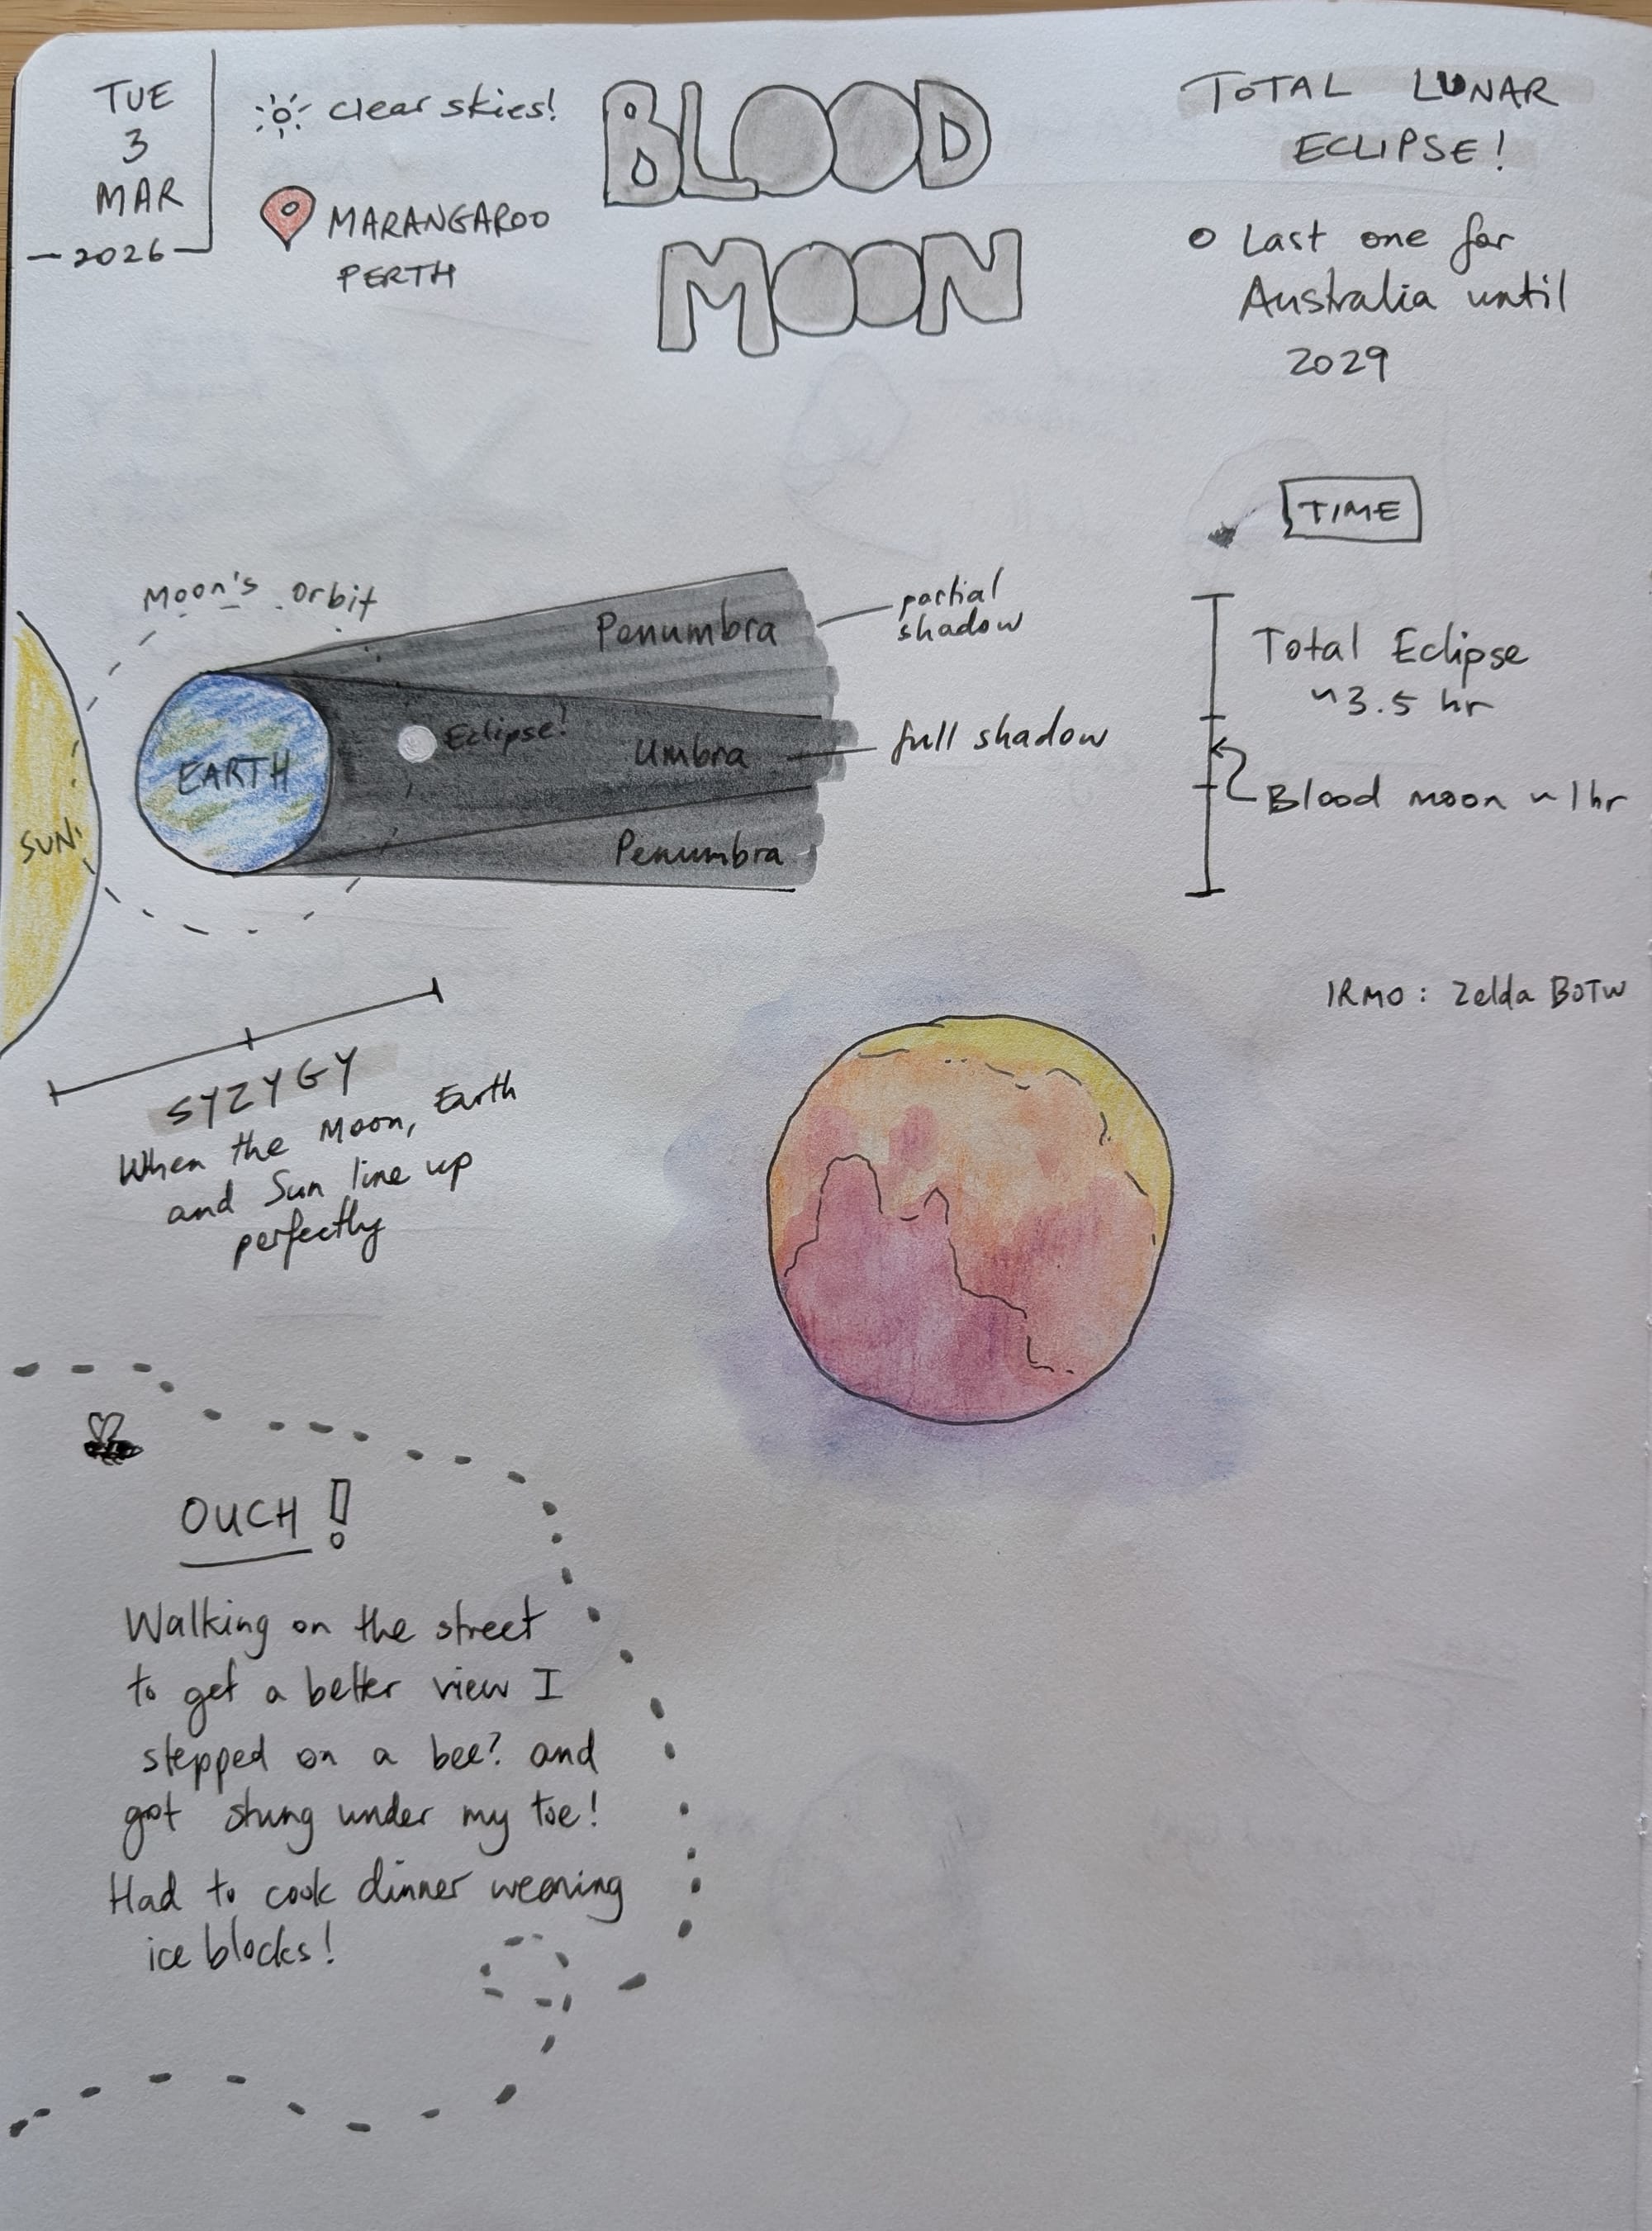 TUE
3
MAR
— 2026 —
clear skies!
MARANGAROO
PERTH
BLOOD
MOON
TOTAL LUNAR
ECLIPSE!
Last one for
Australia until
2029
TIME
Total Eclipse
~3.5 hr
Blood moon ~1hr
Moon's orbit
Penumbra
partial
shadow
Eclipse!
Umbra
full shadow
EARTH
SUN
Penumbra
IRMO: Zelda BOTW
SYZYGY
When the Moon, Earth
and Sun line up
perfectly
OUCH!
Walking on the street
to get a better view I
stepped on a bee? and
got stung under my toe!
Had to cook dinner wearing
ice blocks!